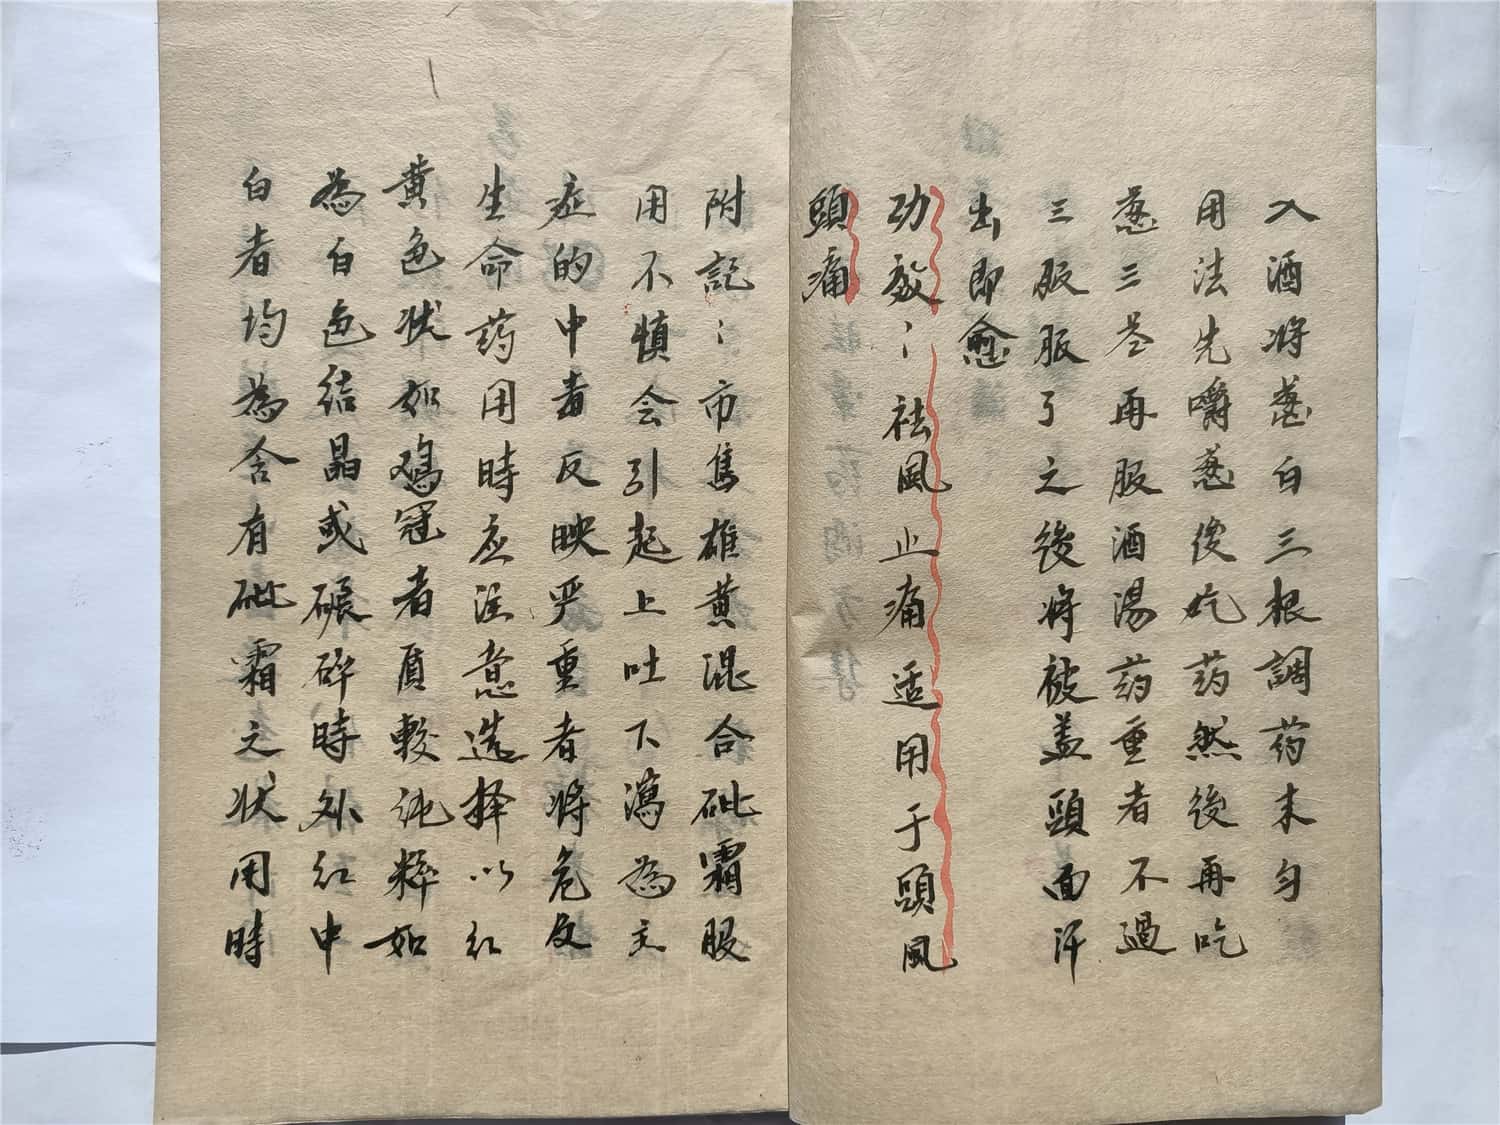 入酒将葱白三根調药末匀
用法先嚼葱後吃药然後再吃
葱三茎再服酒湯药重者不過
三服服了之後将被盖頭面汗
出即愈
功效：祛風止痛适用于頭風
頭痛
附記：市售雄黄混合砒霜服
用不慎会引起上吐下瀉為主
症的中者反映严重者将危及
生命药用時应注意选择以红
黄色状如鸡冠者质較纯粹如
為白色结晶或碾碎時外红中
白者均為含有砒霜之状用時